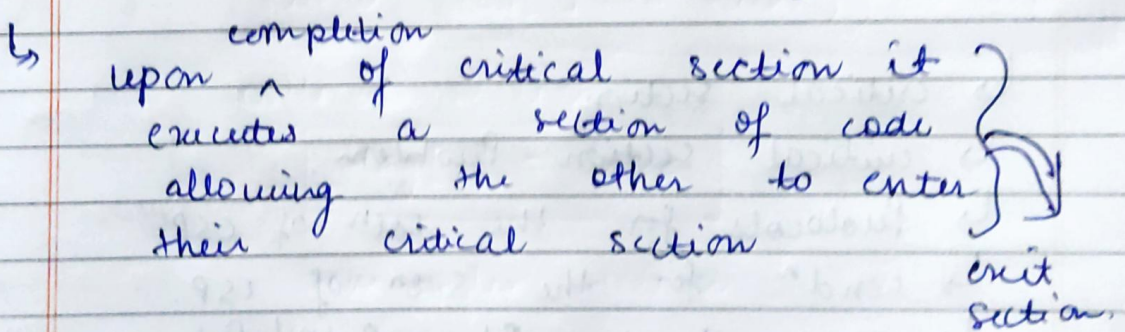 ↳ upon completion of critical section it
executes a section of code
allowing the other to enter
their critical section
exit
section.